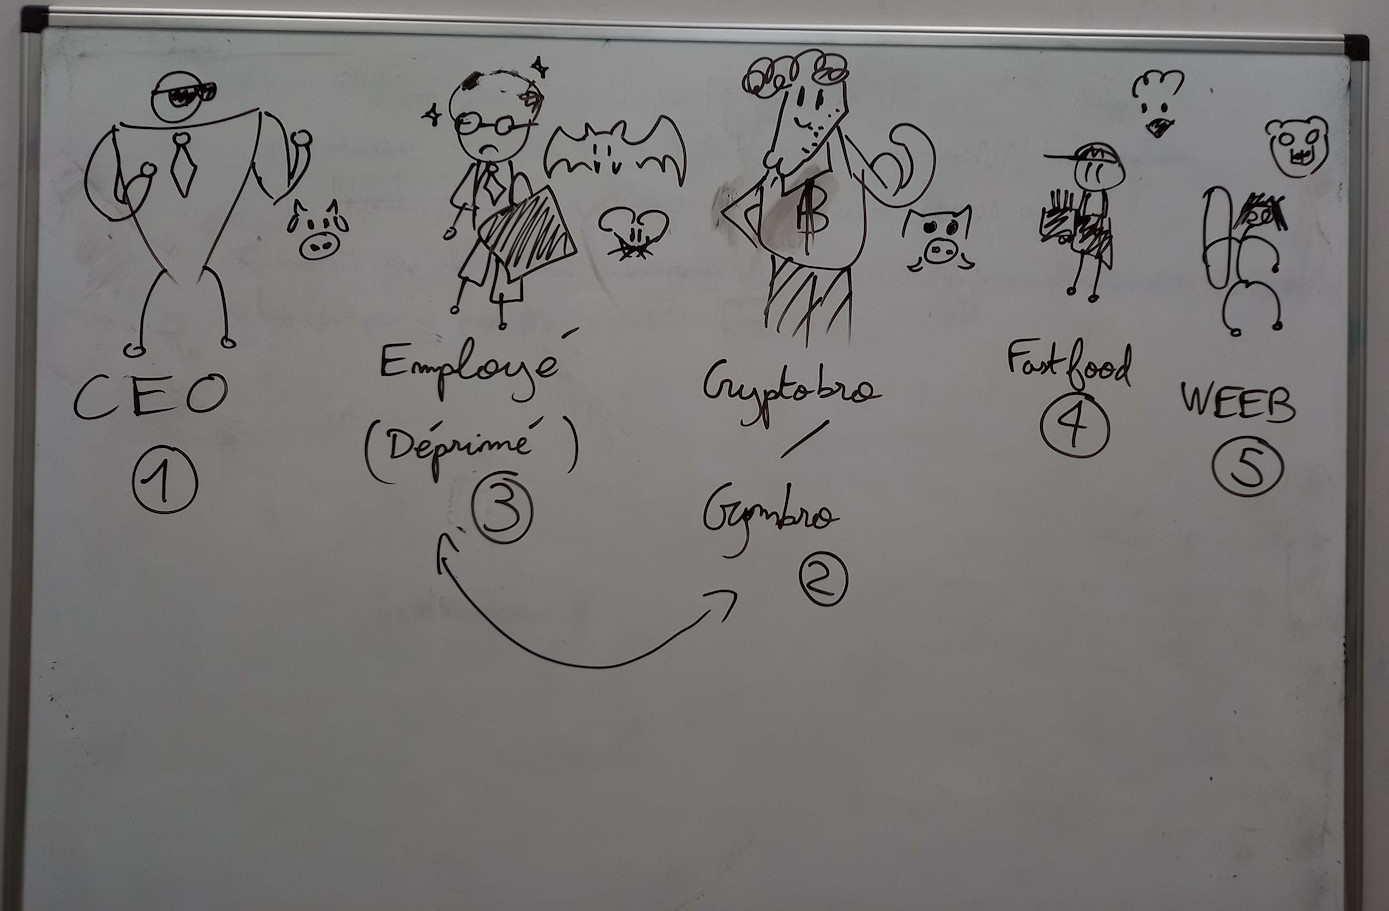 CEO
1
Employé
(Déprimé)
3
Cryptobro
/
Gymbro
2
B
Fastfood
4
WEEB
5